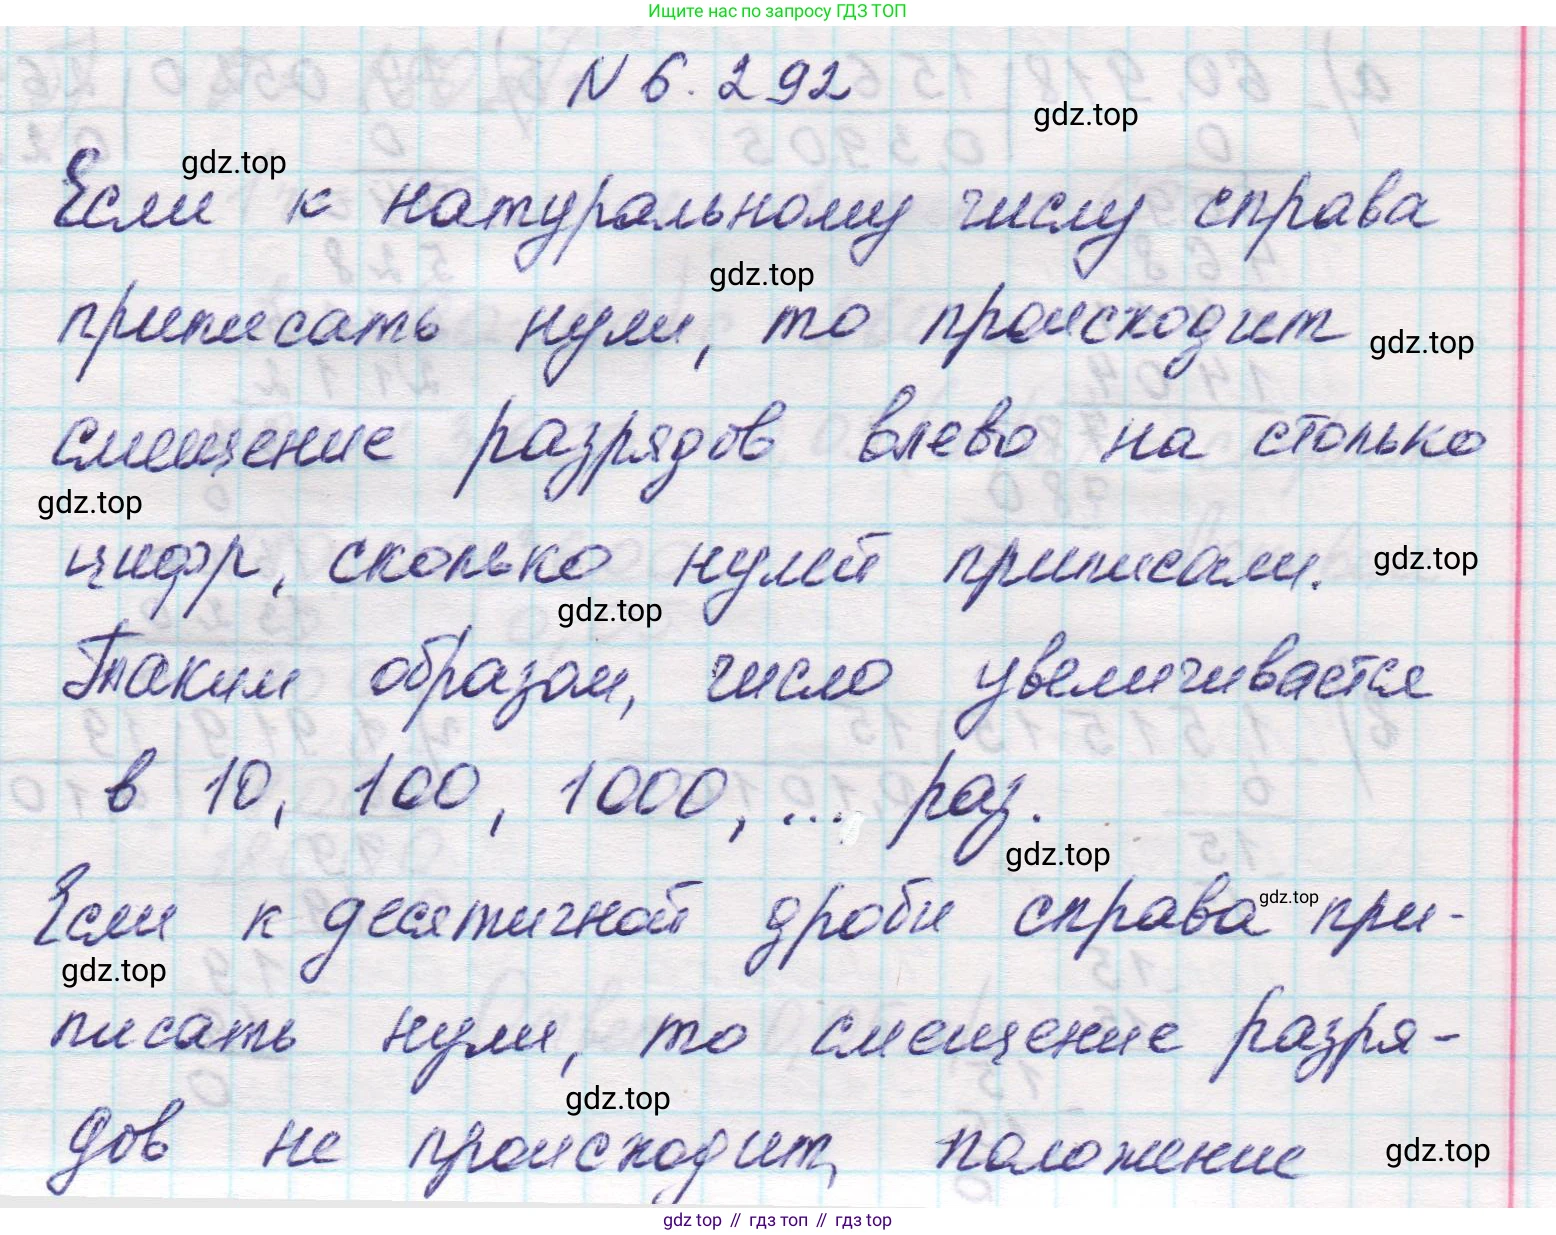 Ищите нас по запросу ГДЗ ТОП
N 6.292
gdz.top
gdz.top
Если к натуральному числу справа
gdz.top
приписать нули, то происходит
gdz.top
смещение разрядов влево на столько
gdz.top
цифр, сколько нулей приписали.
gdz.top
gdz.top
Таким образом, число увеличивается
в 10, 100, 1000, ... раз.
gdz.top
Если к десятичной дроби справа при-
gdz.top
gdz.top
писать нули, то смещение разря-
gdz.top
дов не происходит, положение
gdz.top
gdz top // гдз топ // гдз top